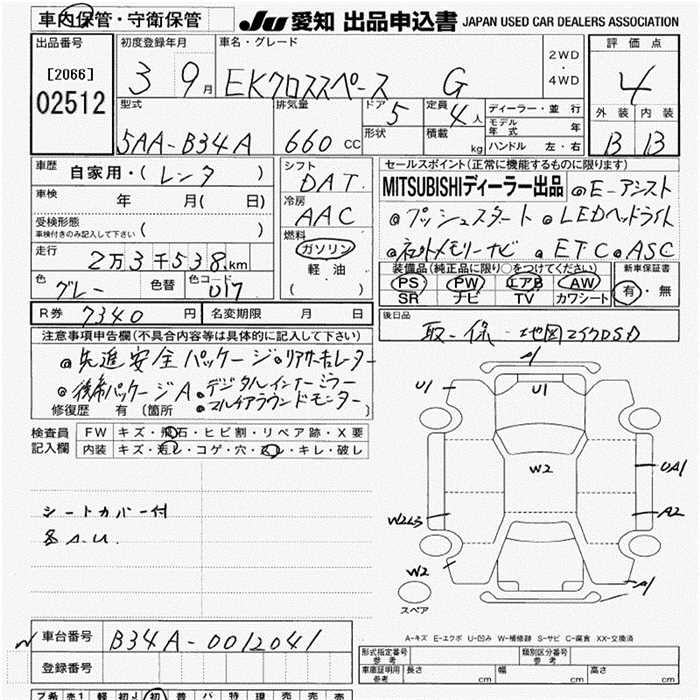 車内保管・守衛保管
JU 愛知 出品申込書 JAPAN USED CAR DEALERS ASSOCIATION
出品番号
[2066]
02512
初度登録年月
3 9月
車名・グレード
EKクロススペース G
2WD
・
4WD
評価点
4
外装 内装
B B
型式
5AA-B34A
排気量
660 CC
ドア 5
形状
定員 4人
積載 kg
ディーラー・並行
モデル年式 年
ハンドル 左・右
車歴 自家用・(レンタ)
車検 年 月( 日)
受検形態
車検付きのみ記入して下さい ( )
走行 2万3千538km
色 グレー 色替 色コード U17
シフト
DAT
冷房
AAC
燃料
ガソリン
軽油
( )
セールスポイント(正常に機能するものに限ります)
MITSUBISHIディーラー出品 @E-アシスト
@プッシュスタート @LEDヘッドライト
@ネットメモリーナビ @ETC @ASC
装備品(純正品に限り○をつけてください)
PS PW エアB AW
SR ナビ TV カワシート
新車保証書
有・無
R券 7340円 名変期限 月 日
後日品
取-保-地図 マイクロSD
注意事項申告欄(不具合内容等は具体的に記入して下さい)
@先進安全パッケージ
@後席パッケージA @デジタルインナーミラー
@マルチアラウンドモニター
修復歴 有 〔箇所 〕
検査員記入欄
FW キズ・飛石・ヒビ割・リペア跡・X要
内装 キズ・汚レ・コゲ・穴・スレ・キレ・破レ
シートカバー付
各A.U.
A1
U1 U1
W2
UA1
W2L3 A2
W2 A1
スペア
A-キズ E-エクボ U-凹み W-補修跡 S-サビ C-腐食 XX-交換済
車台番号 B34A-0012041
登録番号
形式指定番号 参考
類別区分番号 参考
車庫証明用 参考 長さ cm 幅 cm 高さ cm